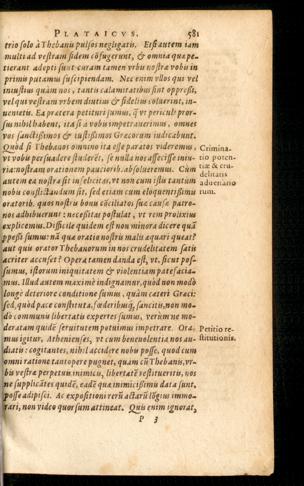 PLATAICVS. 581
trio solo à Thebanis pulsos negligatis. Etsi autem iam
multi ad vestram fidem cōfugerunt, & omnia quæ pe-
tierant adepti sunt: curam tamen vrbis nostræ vobis in
primis putamus suscipiendam. Nec enim vllos qui vel
iniustius quàm nos, tantis calamitatibus sint oppressi,
vel qui vestram vrbem diutius & fidelius coluerint, in-
uenietis. Ea præterea petituri sumus, quæ vt periculi pror-
sus nihil habent, ita si à vobis impetrauerimus, omnes
vos sanctissimos & iustissimos Græcorum iudicabunt.
Quòd si Thebanos omnino ita esse paratos videremus,
vt vobis persuadere studerēt, se nulla nos affecisse iniu-
ria: nostram orationem paucioribus absolueremus. Cùm
autem ea nostra sit infelicitas, vt non cum istis tantum
nobis conflictandum sit, sed etiam cum eloquentissimis
oratorib. quos nostris bonis cōciliatos suæ causæ patro-
nos adhibuerunt: necessitas postulat, vt rem prolixius
explicemus. Difficile quidem est non minora dicere quā
passi sumus: nā quæ oratio nostris malis æquari queat?
aut quis orator Thebanorum in nos crudelitatem satis
acriter accuset? Opera tamen danda est, vt, sicut pos-
sumus, istorum iniquitatem & violentiam patefacia-
mus. Illud autem maximè indignamur, quòd non modò
longè deteriore conditione sumus, quàm cæteri Græci:
sed, quòd pace constituta, fœderibusq́; sancitis, non mo-
dò communis libertatis expertes sumus, verùm ne mo-
deratam quidē seruitutem potuimus impetrare. Ora-
mus igitur, Athenienses, vt cum beneuolentia nos au-
diatis: cogitantes, nihil accidere nobis posse, quod cum
omni ratione tantopere pugnet, quàm cùm Thebanis, vr-
bis vestræ perpetuis inimicis, libertatē restitueritis, nos
ne supplicātes quidē, eadē quæ inimicissimis data sunt,
posse adipisci. Ac expositioni rerū actarū lōgius immo-
rari, non video quorsum attineat. Quis enim ignorat,
P 3
Crimina-
tio poten-
tiæ & cru-
delitatis
aduersario
rum.
Petitio re-
stitutionis.